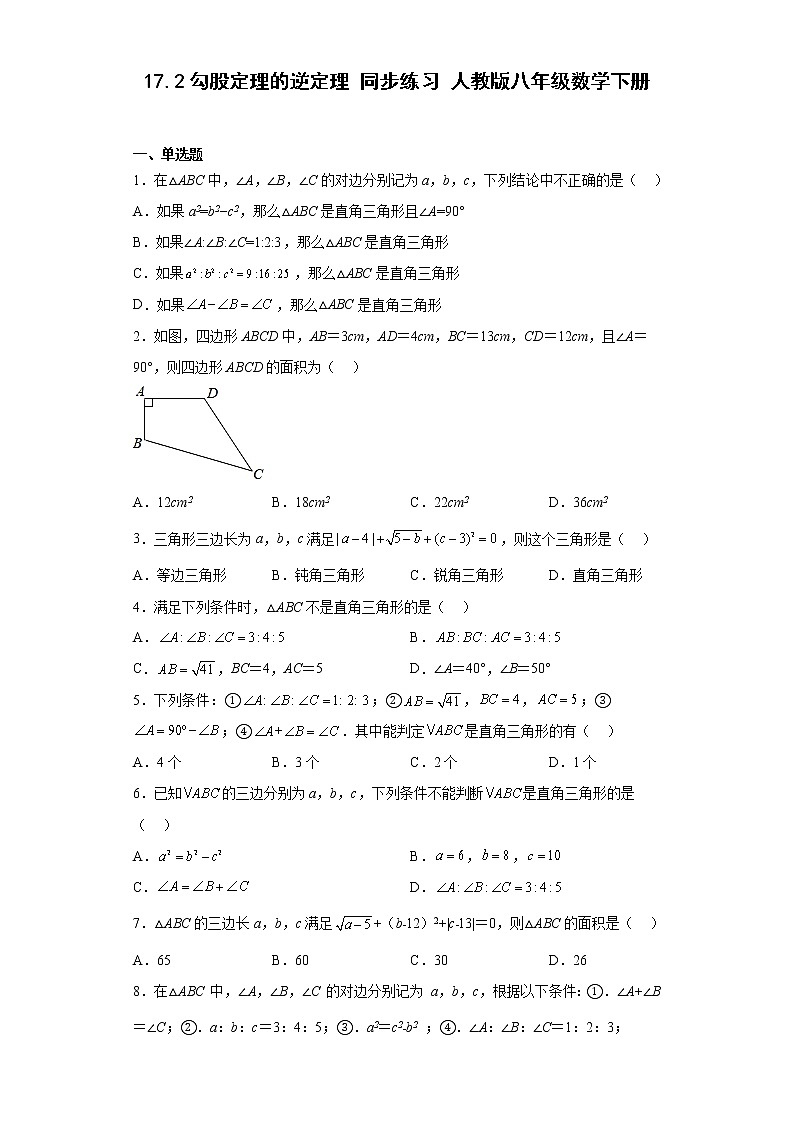 17.2勾股定理的逆定理 同步练习 人教版八年级数学下册
一、单选题
1．在△ABC中，∠A，∠B，∠C的对边分别记为a，b，c，下列结论中不正确的是（ ）
A．如果a²=b²−c²，那么△ABC是直角三角形且∠A=90°
B．如果∠A:∠B:∠C=1:2:3，那么△ABC是直角三角形
C．如果a²:b²:c²=9:16:25，那么△ABC是直角三角形
D．如果∠A−∠B=∠C，那么△ABC是直角三角形
2．如图，四边形ABCD中，AB＝3cm，AD＝4cm，BC＝13cm，CD＝12cm，且∠A＝
90°，则四边形ABCD的面积为（ ）
A D
B
C
A．12cm² B．18cm² C．22cm² D．36cm²
3．三角形三边长为a，b，c满足|a−4|+√(5−b)+(c−3)²=0，则这个三角形是（ ）
A．等边三角形 B．钝角三角形 C．锐角三角形 D．直角三角形
4．满足下列条件时，△ABC不是直角三角形的是（ ）
A．∠A:∠B:∠C=3:4:5 B．AB:BC:AC=3:4:5
C．AB=√41，BC＝4，AC＝5 D．∠A＝40°，∠B＝50°
5．下列条件：①∠A:∠B:∠C=1:2:3；②AB=√41，BC=4，AC=5；③
∠A=90°−∠B；④∠A+∠B=∠C．其中能判定VABC是直角三角形的有（ ）
A．4个 B．3个 C．2个 D．1个
6．已知VABC的三边分别为a，b，c，下列条件不能判断VABC是直角三角形的是
（ ）
A．a²=b²−c² B．a=6，b=8，c=10
C．∠A=∠B+∠C D．∠A:∠B:∠C=3:4:5
7．△ABC的三边长a，b，c满足√(a−5)+（b-12）²+|c-13|＝0，则△ABC的面积是（ ）
A．65 B．60 C．30 D．26
8．在△ABC 中，∠A，∠B，∠C 的对边分别记为 a，b，c，根据以下条件：①．∠A+∠B
＝∠C；②．a：b：c＝3：4：5；③．a²＝c²-b² ；④．∠A：∠B：∠C＝1：2：3；